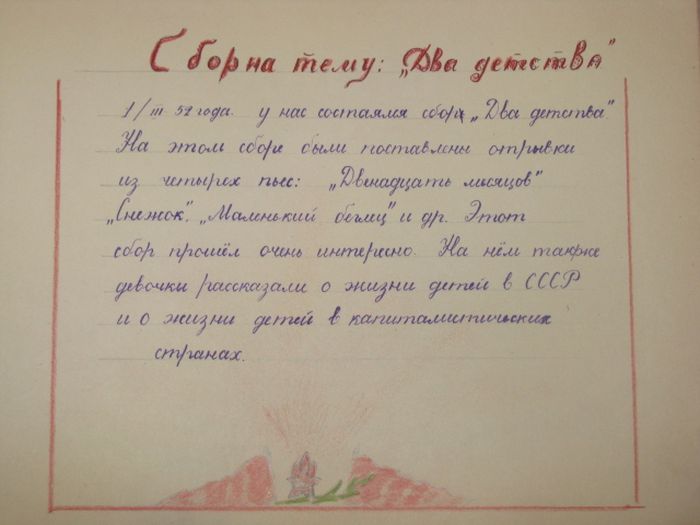 Сбор на тему: „Два детства"
1/III 52 года. у нас состаялся сбор „Два детства"
На этом сборе были поставлены отрывки
из четырех пьес: „Двенадцать месяцов"
„Снежок", „Маленький беглец" и др. Этот
сбор прошёл очень интересно. На нём также
девочки рассказали о жизни детей в СССР
и о жизни детей в капиталистических
странах.